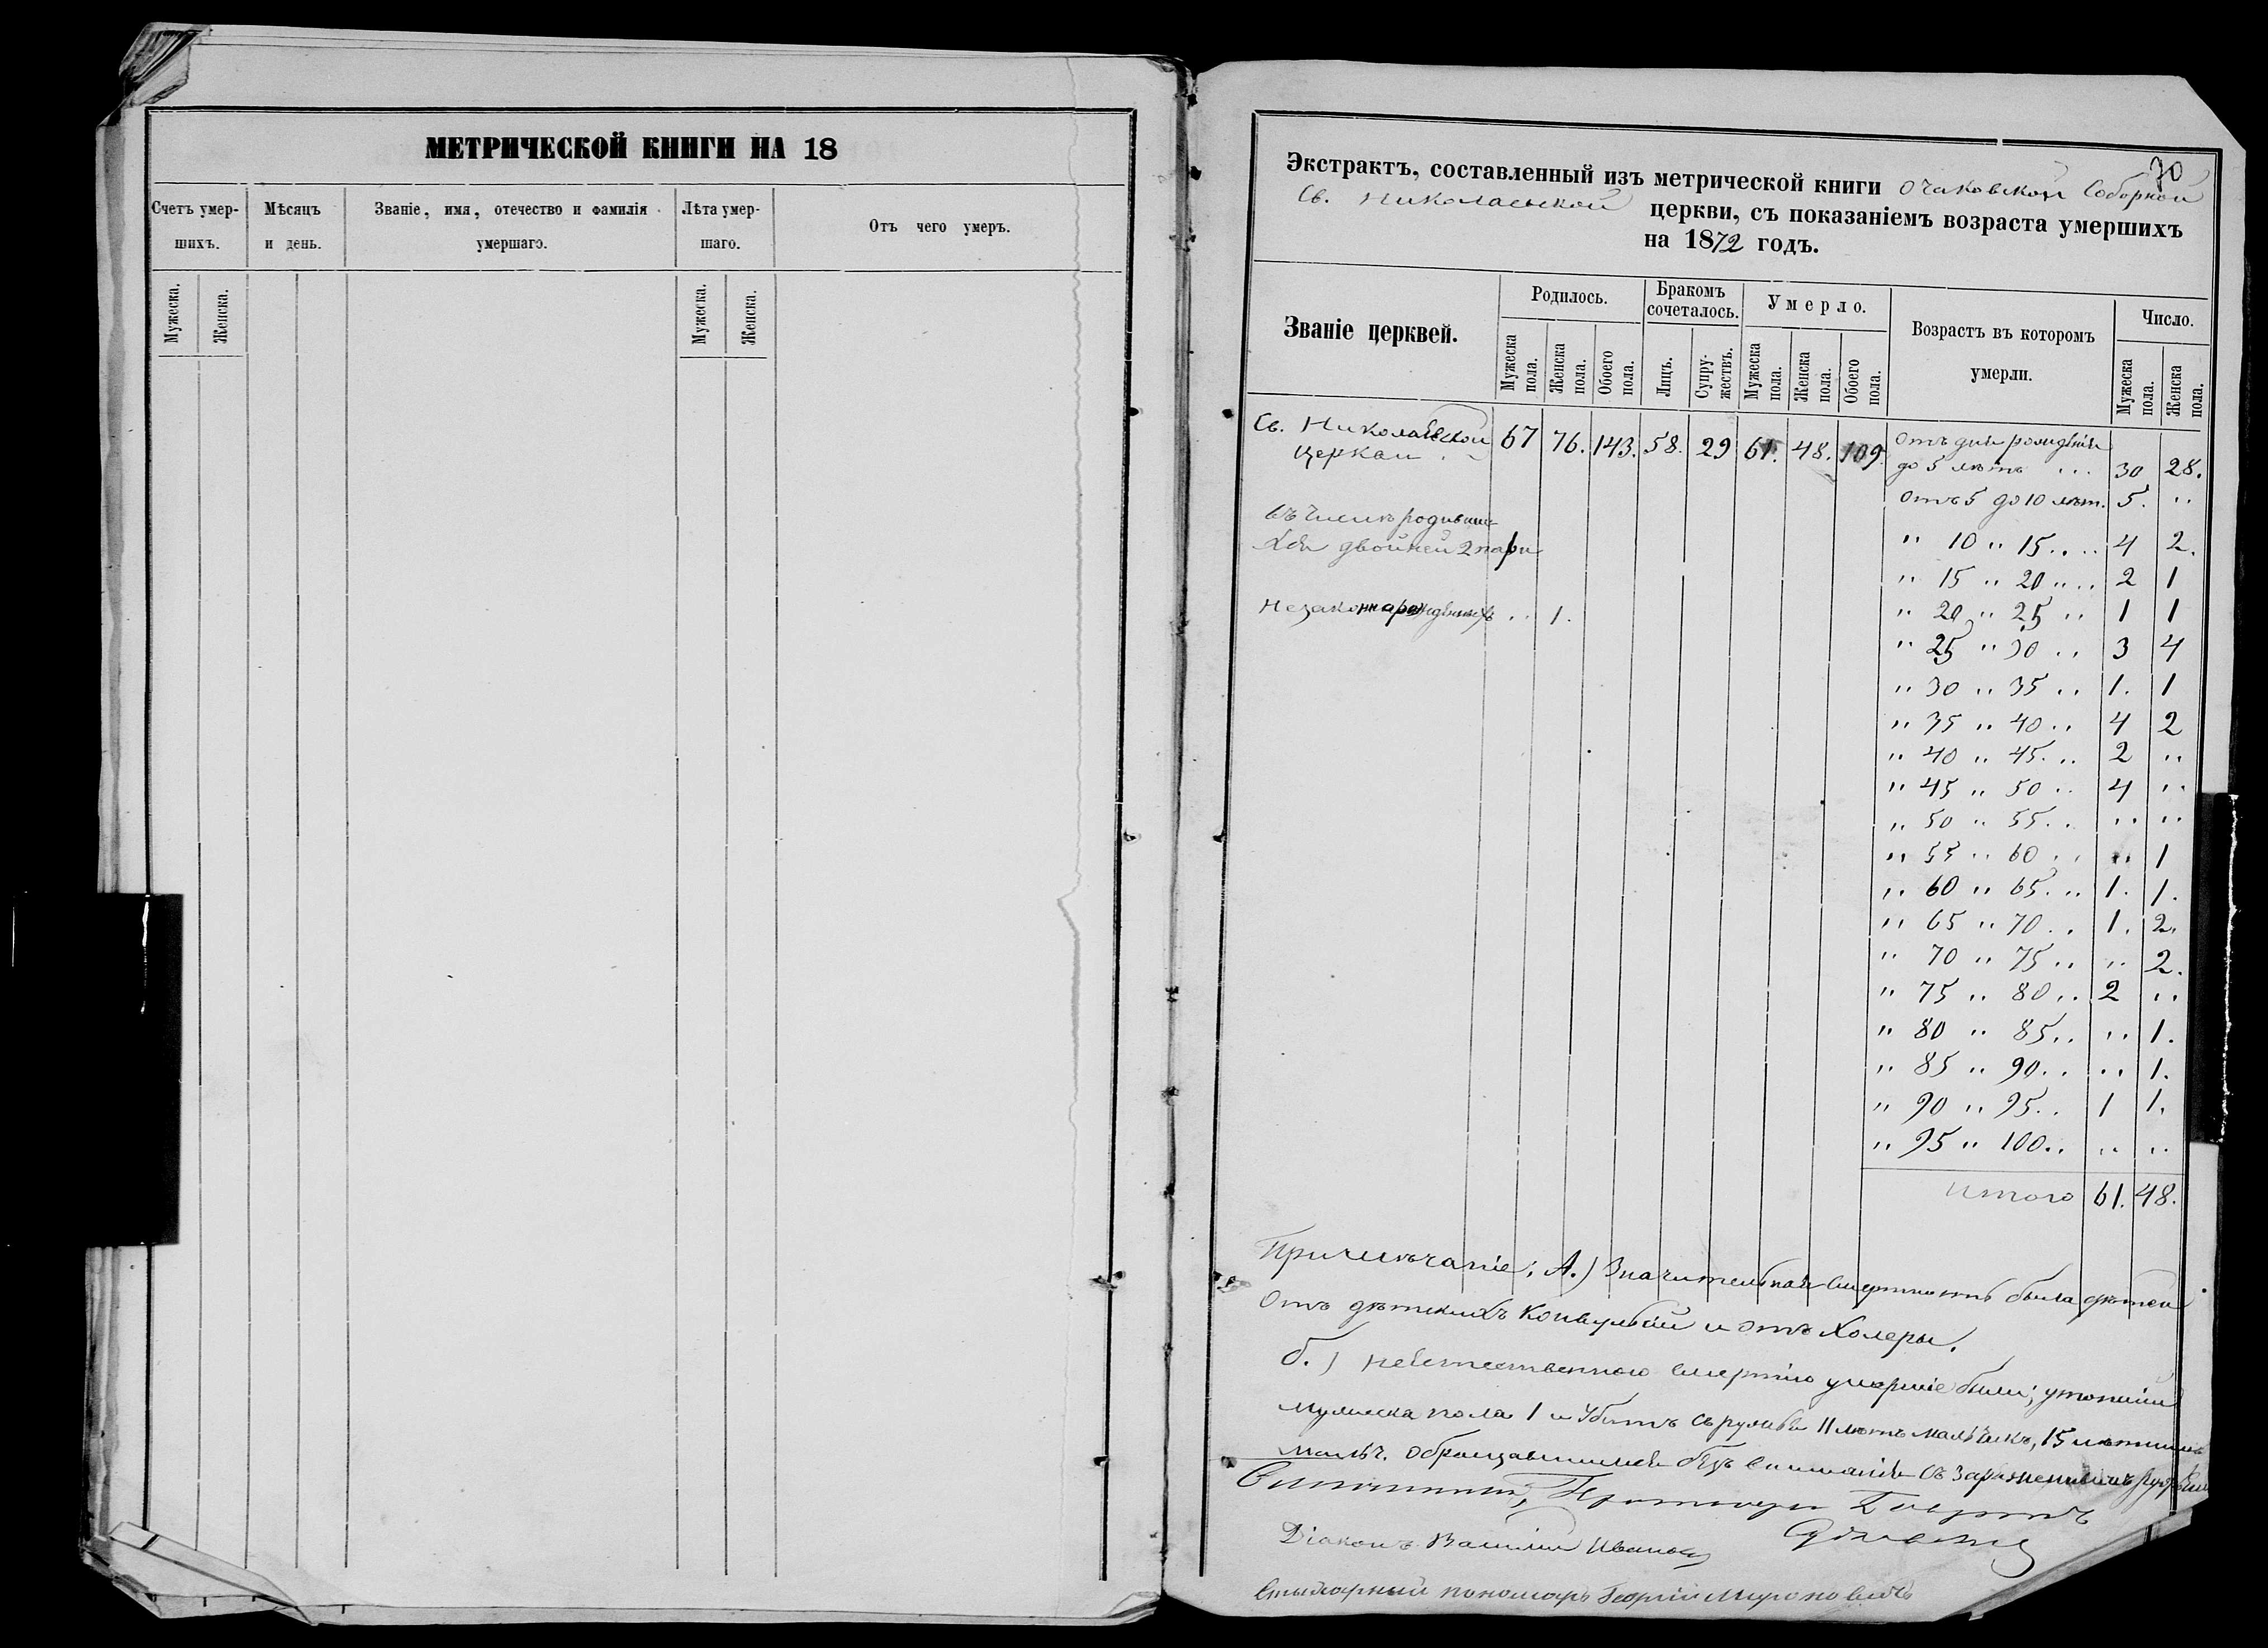 МЕТРИЧЕСКОЙ КНИГИ НА 18
Счетъ умер-
шихъ.
Мѣсяцъ
и день.
Званіе, имя, отечество и фамилія
умершаго.
Лѣта умер-
шаго.
Отъ чего умеръ.
Мужеска.
Женска.
Мужеска.
Женска.
70
Экстрактъ, составленный изъ метрической книги Очаковской Соборной
Св. Николаевской церкви, съ показаніемъ возраста умершихъ
на 1872 годъ.
Званіе церквей.
Родилось.
Бракомъ
сочеталось.
Умерло.
Возрастъ въ которомъ
умерли.
Число.
Мужеска пола.
Женска пола.
Обоего пола.
Лицъ.
Супру-
жествъ.
Мужеска пола.
Женска пола.
Обоего пола.
Мужеска пола.
Женска пола.
Св. Николаевской 67 76. 143. 58. 29 61. 48. 109. Отъ дня рожденія
церкви до 5 лѣтъ ... 30 28.
Отъ 5 до 10 лѣт. 5. ..
Въ числѣ родивши-
хся двойней 2 пары
" 10 " 15.... 4 2.
" 15 " 20 .... 2 1
Незаконнорожденныхъ .. 1.
" 20 " 25 .. 1 1
" 25 " 30 .. 3 4
" 30 " 35 .. 1. 1
" 35 " 40 .. 4 2
" 40 " 45. .. 2 ..
" 45 " 50 .. 4 ..
" 50 " 55.. .. ..
" 55 " 60 .. .. 1
" 60 " 65. .. 1. 1.
" 65 " 70 .. 1. 2.
" 70 " 75 .. .. 2.
" 75 " 80 .. 2 ..
" 80 " 85.. .. 1.
" 85 " 90.. .. 1.
" 90 " 95.. 1 1.
" 95 " 100.. .. ..
Итого 61. 48.
Примѣчаніе: А.) Значительная смертность была дѣтей
Отъ дѣтскихъ конвульсій и отъ Холеры.
б.) неестественною смертію умершіе были; утопшій
мужеска пола 1 и Убитъ съ ружья 11 лѣтъ мальчикъ, 15 лѣтнимъ
мальч. обращавшимся безъ вниманія съ заряженнымъ ружьемъ
Діаконъ Василій Иванов
пономарь Георгій Мироновичъ